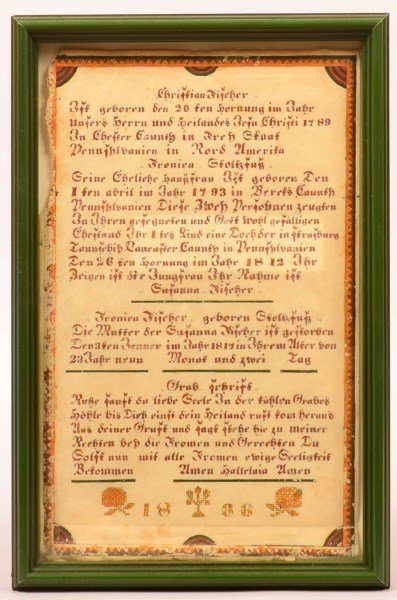 Christian Fischer
Ist geboren den 20 ten Hornung im Jahr
Unsers Herrn und Heilandes Jesu Christi 1789
In Chester Caunth in Freh Staat
Pennshlvanien in Nord Amerika
Fronica Stoltzfuß
Seine Eheliche Haußfrau Ist geboren Den
1 ten abril im Jahr 1793 in Berecks Caunth
Pennshlvanien Diese Zweh Persohnen zeugten
In Ihren gesegneten und Gott wohl gefälligen
Ehestand Ihr 1 tes Kind eine Dochder in strasburg
Taunschib Lancaster Caunth in Pennshlvanien
Den 26 ten Hornung im Jahr 1812 Ihr
Zeigen ist die Jungfrau Ihr Nahme ist
Susanna Fischer
Fronica Fischer geboren Stoltzfuß
Die Mutter der Sasanna Fischer ist gestorben
Den 3 ten Jenner im Jahr 1817 in Ihrem Alter von
23 Jahr neun Monat und zwei Tag
Grab schrift
Ruhe sanft du liebe Seele In der kühlen Grabes
Höhle bis Dich einst dein Heiland ruft kom heraus
Aus deiner Gruft und sagt stehe hie zu meiner
Rechten beh die Fromen und Gerechten Du
Solst nun mit alle Fromen ewige Seeligkeit
Bekommen Amen Halleluia Amen
1866